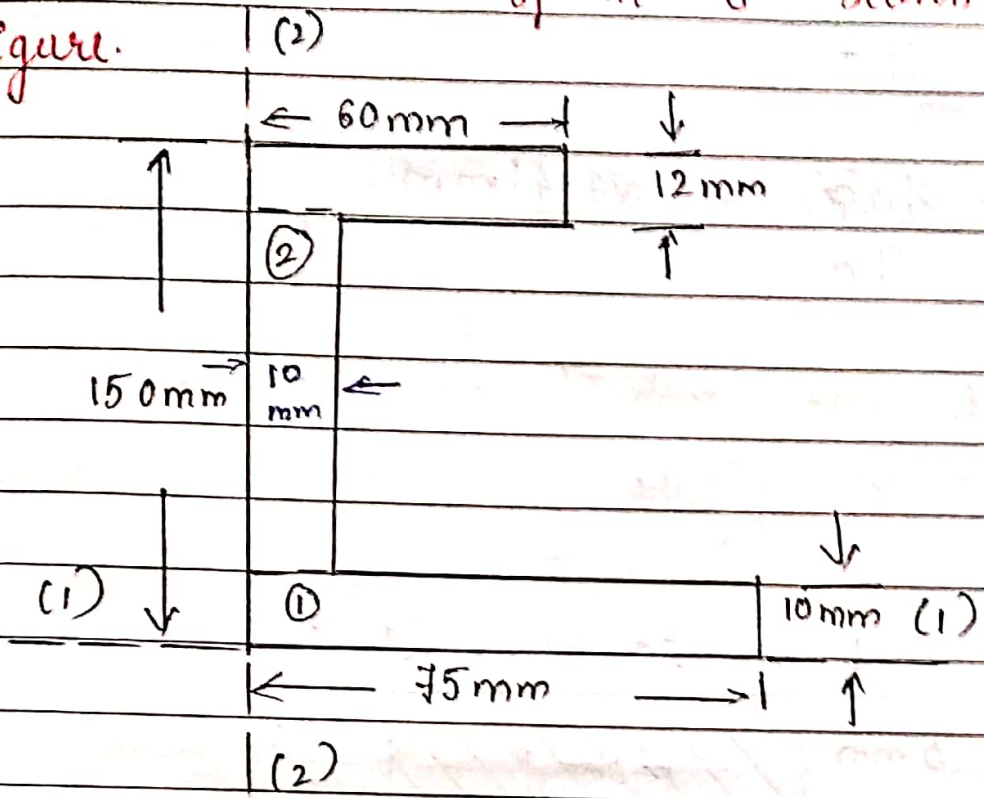 (2)
60mm
12mm
②
10
mm
150mm
①
(1)
10mm (1)
75mm
(2)